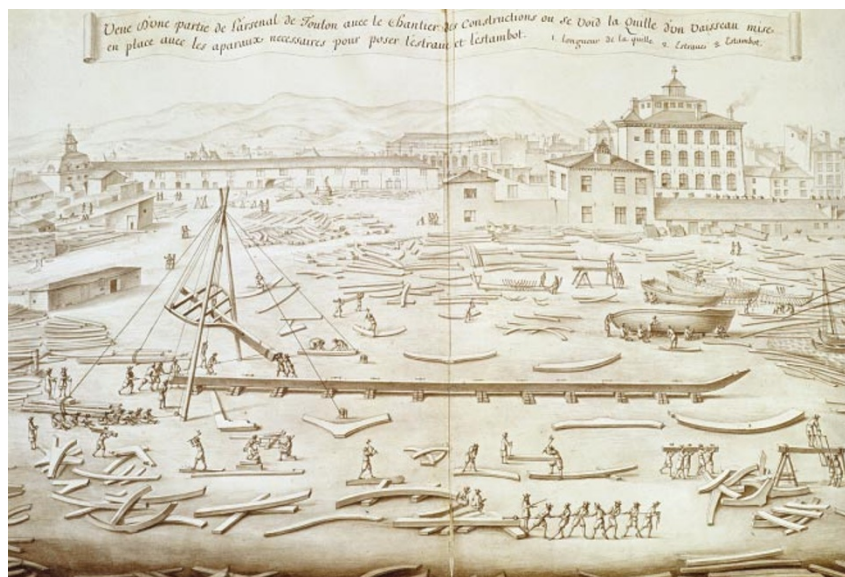 Veue d'une partie de l'arsenal de Toulon avec le Chantier des Constructions ou se void la Quille d'un Vaisseau mise,
en place avec les aparaux, necessaires pour poser l'estrave et l'estambot. 1. Longueur de la quille 2. Estrave, 3. Estambot.